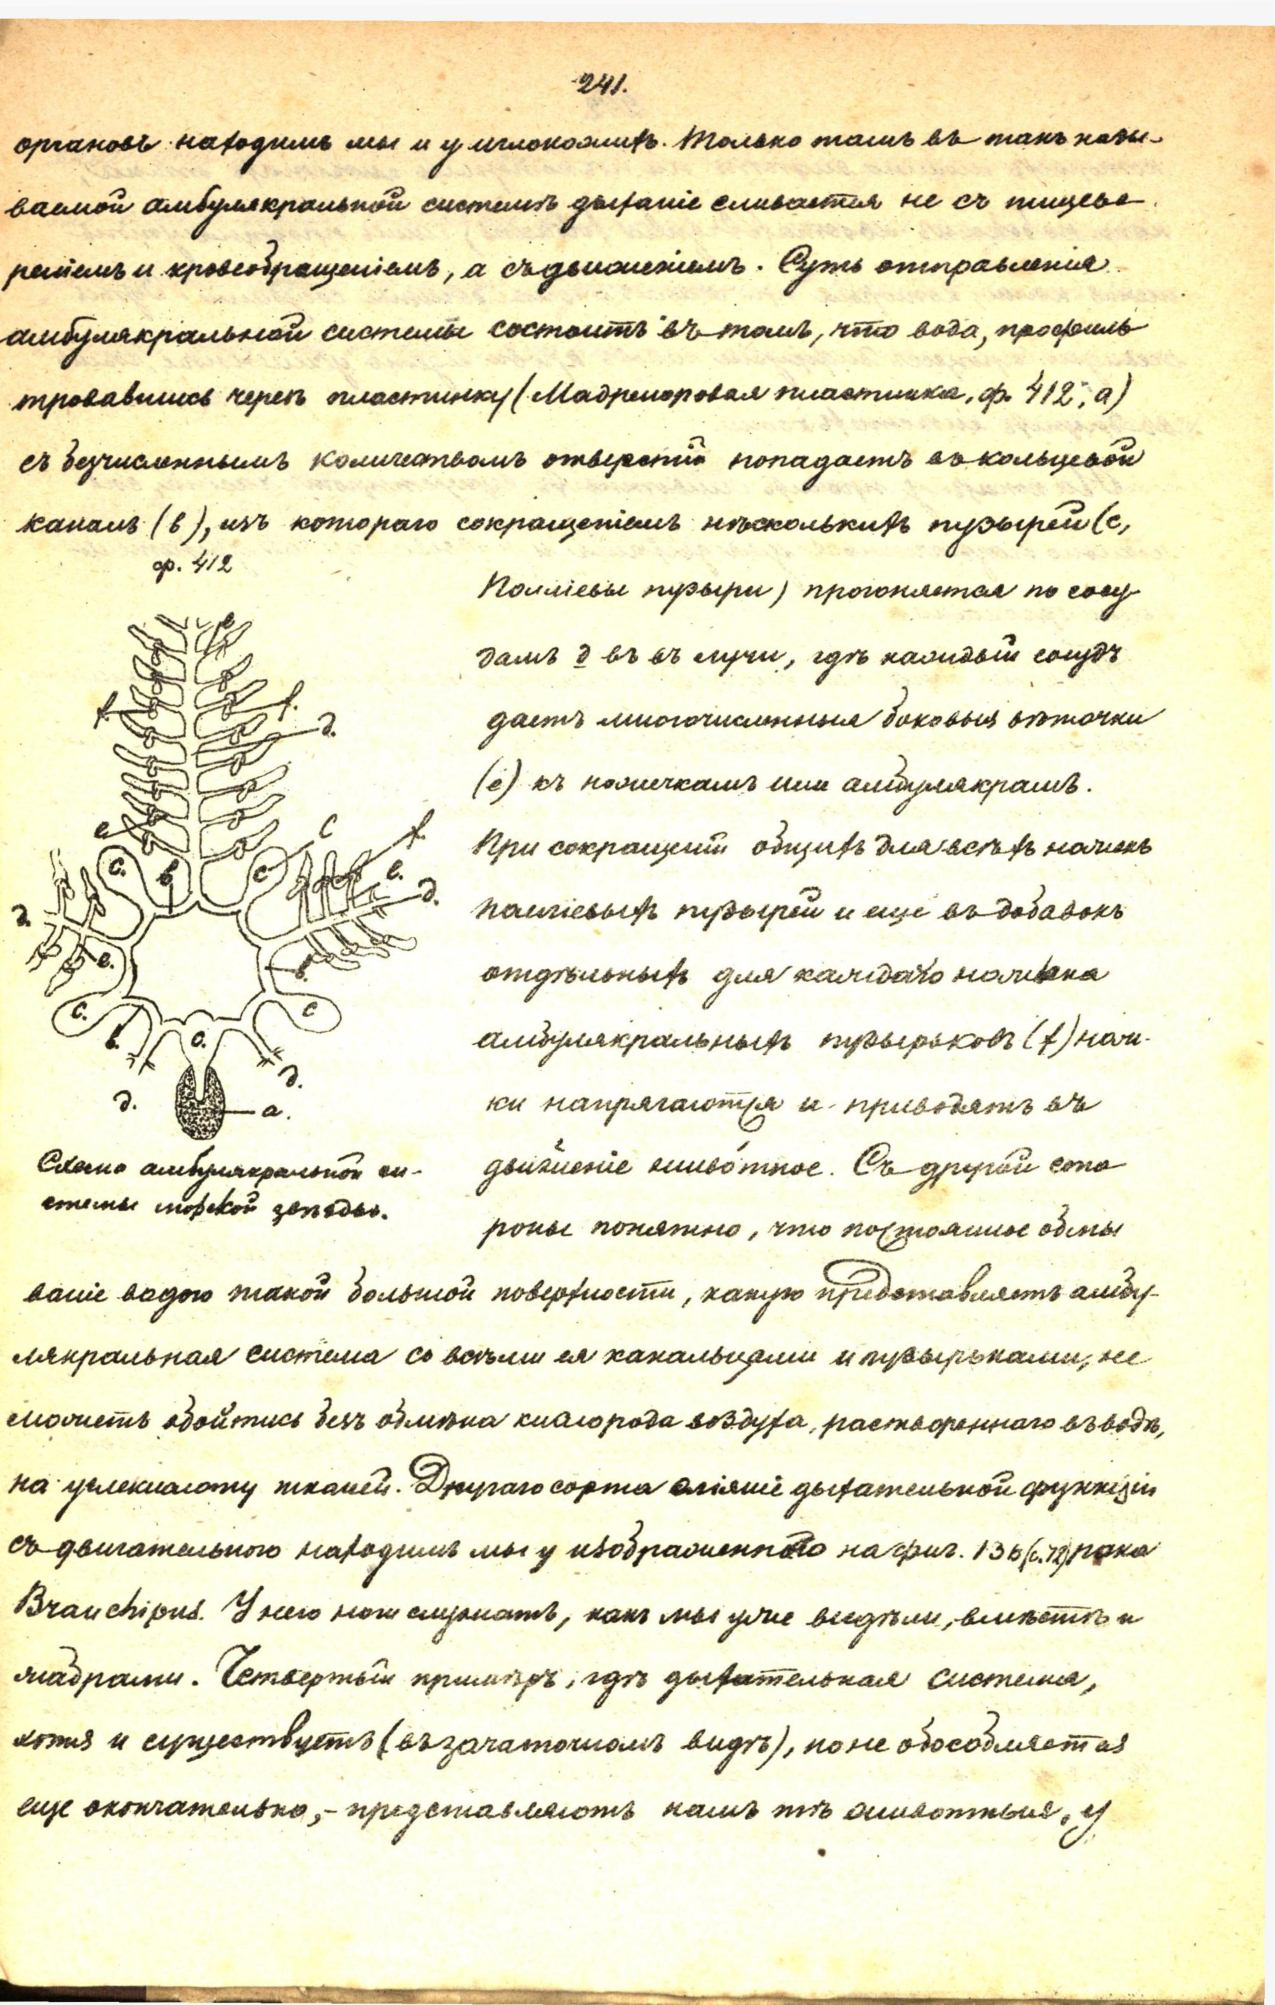 241.
органовъ находимъ мы и у иглокожихъ. Только тамъ въ такъ назы-
ваемой амбулякральной системѣ дыханіе сливается не съ пищева
реніемъ и кровеобращеніемъ, а съ движеніемъ. Суть отправленія
амбулякральной системы состоитъ въ томъ, что вода, профиль
тровавшись черезъ пластинку (Мадрепоровая пластинка, ф. 412, а)
съ безчисленнымъ количествомъ отверстій попадаетъ въ кольцевой
каналъ (в), изъ котораго сокращеніемъ нѣсколькихъ пузырей (с,
ф. 412
Поліевы пузыри) прогоняется по сосу
дамъ д въ въ лучи, гдѣ каждый сосудъ
даетъ многочисленныя боковыя вѣточки
(е) къ ножечкамъ или амбулякрамъ.
При сокращеніи общихъ для всѣхъ ножекъ
поліевыхъ пузырей и еще въ добавокъ
отдѣльныхъ для каждаго ножека
амбулякральныхъ пузырьковъ (f) нож-
ки напрягаются и приводятъ въ
движеніе животное. Съ другой сто
роны понятно, что постоянное обмы
e
f.
f.
д.
e
c.
в
c
C
f.
e.
д.
д.
e.
в.
c.
c
в.
о.
д.
д.
a.
Схема амбулякральной си-
стемы морской звѣзды.
ваніе водою такой большой поверхности, какую представляетъ амбу-
лякральная система со всѣми ея канальцами и пузырьками, не
можетъ обойтись безъ обмѣна кислорода воздуха, раствореннаго въ водѣ,
на углекислоту тканей. Другаго сорта сліяніе дыхательной функціи
съ двигательного находимъ мы у изображеннаго на фиг. 136 (с. 72) рака
Branchipus. У него ноги служатъ, какъ мы уже видѣли, вмѣстѣ и
жабрами. Четвертый примѣръ, гдѣ дыхательная система,
хотя и существуетъ (въ зачаточномъ видѣ), но не обособляется
еще окончательно, - представляютъ намъ тѣ животныя, у